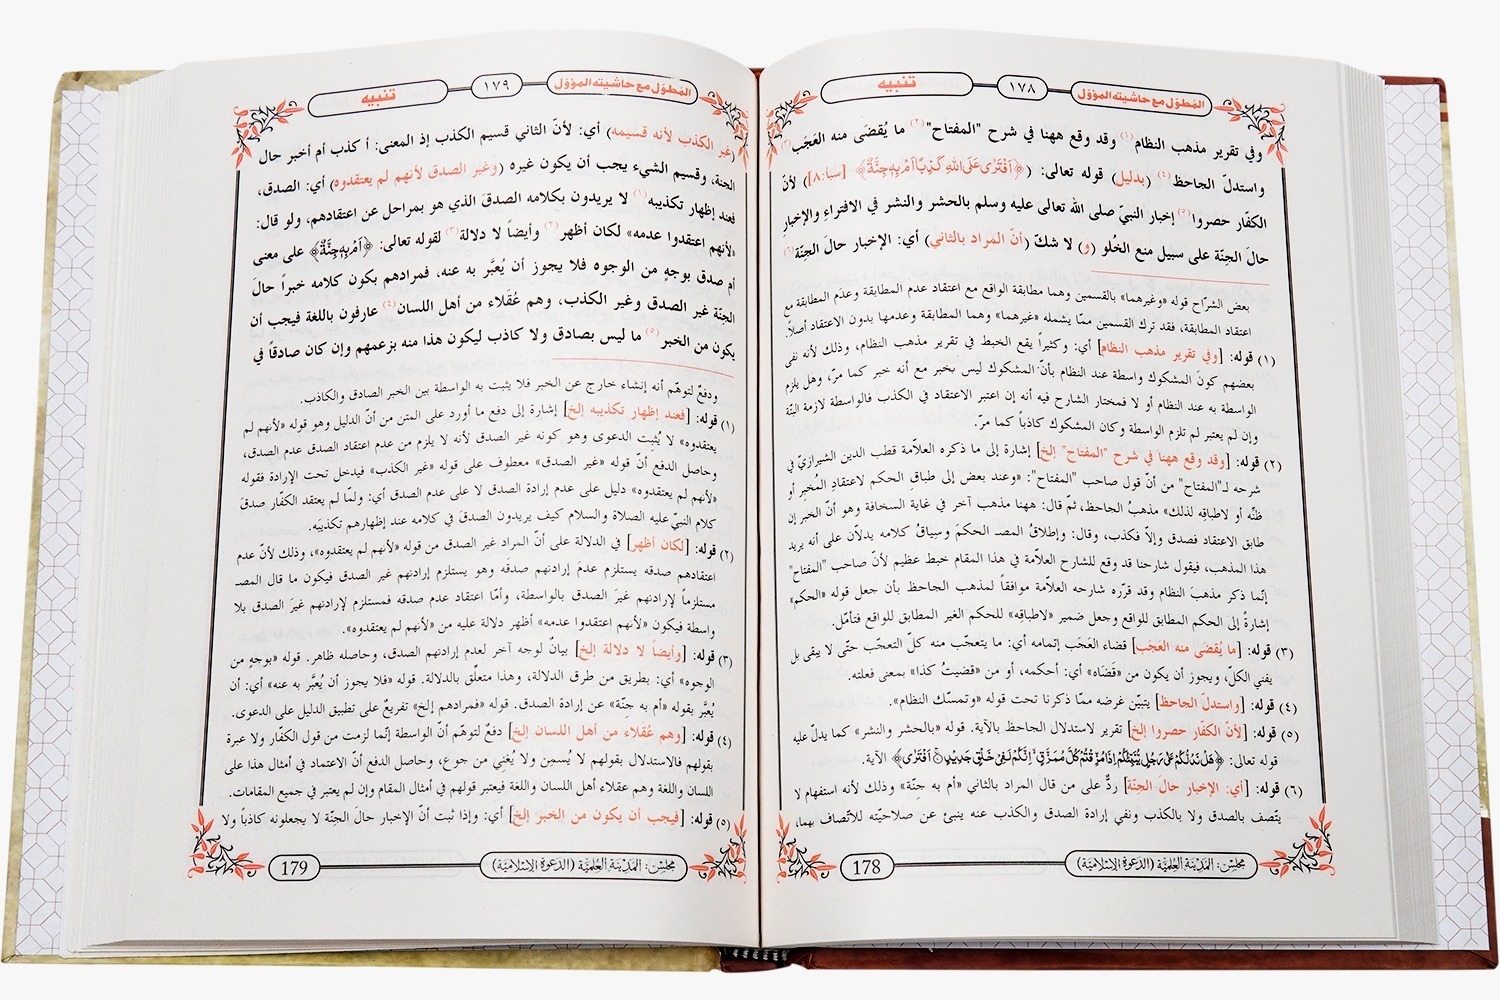 المطوّل مع حاشيته المؤوّل
١٧٨
تنبيه
وفي تقرير مذهب النظام(١) وقد وقع ههنا في شرح "المفتاح"(٢) ما يُقضَى منه العَجَب(٣)
واستدلّ الجاحظ(٤) (بدليل) قوله تعالى: (﴿اَفْتَرٰى عَلَى اللهِ كَذِبًا اَمْ بِهٖ جِنَّةٌ﴾ [سبا:٨]) لأنّ
الكفّار حصروا(٥) إخبار النبيّ صلى الله تعالى عليه وسلم بالحشر والنشر في الافتراء والإخبار
حالَ الجنّة على سبيل منع الخُلو (و) لا شكّ (أنّ المراد بالثاني) أي: الإخبار حالَ الجِنّة(٦)
بعض الشرّاح قوله «وغيرهما» بالقسمين وهما مطابقة الواقع مع اعتقاد عدم المطابقة وعدَم المطابقة مع
اعتقاد المطابقة، فقد ترك القسمين ممّا يشمله «غيرهما» وهما المطابقة وعدمها بدون الاعتقاد أصلاً.
(١) قوله: [وفي تقرير مذهب النظام] أي: وكثيراً يقع الخبط في تقرير مذهب النظام، وذلك لأنه نفى
بعضهم كونَ المشكوك واسطة عند النظام بأنّ المشكوك ليس بخبر مع أنه خبر كما مرّ، وهل يلزم
الواسطة به عند النظام أو لا فمختار الشارح فيه أنه إن اعتبر الاعتقاد في الكذب فالواسطة لازمة البتّة
وإن لم يعتبر لم تلزم الواسطة وكان المشكوك كاذباً كما مرّ.
(٢) قوله: [وقد وقع ههنا في شرح "المفتاح" إلخ] إشارة إلى ما ذكره العلاّمة قطب الدين الشيرازيّ في
شرحه لـ"المفتاح" من أنّ قول صاحب "المفتاح": «وعند بعض إلى طباق الحكم لاعتقادِ المُخبِر أو
ظنِّه أو لاطباقِه لذلك» مذهبُ الجاحظ، ثمّ قال: ههنا مذهب آخر في غاية السخافة وهو أنّ الخبر إن
طابق الاعتقاد فصدق وإلاّ فكذب، وقال: وإطلاقُ المصـ الحكمَ وسياقُ كلامه يدلاّن على أنه يريد
هذا المذهب، فيقول شارحنا قد وقع للشارح العلاّمة في هذا المقام خبط عظيم لأنّ صاحب "المفتاح"
إنّما ذكر مذهبَ النظام وقد قرّره شارحه العلاّمة موافقاً لمذهب الجاحظ بأن جعل قوله «الحكم»
إشارةً إلى الحكم المطابق للواقع وجعل ضمير «لاطباقِه» للحكم الغير المطابق للواقع فتأمّل.
(٣) قوله: [ما يُقضَى منه العَجَب] قضاء العَجَب إتمامه أي: ما يتعجّب منه كلّ التعجّب حتّى لا يبقى بل
يفني الكلّ، ويجوز أن يكون من «قَضَاه» أي: أحكمه، أو من «قضيتُ كذا» بمعنى فعلته.
(٤) قوله: [واستدلّ الجاحظ] يتبيّن غرضه ممّا ذكرنا تحت قوله «وتمسك النظام».
(٥) قوله: [لأنّ الكفّار حصروا إلخ] تقرير لاستدلال الجاحظ بالآية. قوله «بالحشر والنشر» كما يدلّ عليه
قوله تعالى: ﴿هَلْ نَدُلُّكُمْ عَلٰى رَجُلٍ يُّنَبِّئُكُمْ اِذَا مُزِّقْتُمْ كُلَّ مُمَزَّقٍ ۙ اِنَّكُمْ لَفِىْ خَلْقٍ جَدِيْدٍ ۚ اَفْتَرٰى﴾ الآية.
(٦) قوله: [أي: الإخبار حالَ الجنّة] ردٌّ على من قال المراد بالثاني «أم به جِنّة» وذلك لأنه استفهام لا
يتّصف بالصدق ولا بالكذب ونفي إرادة الصدق والكذب عنه ينبئ عن صلاحيّته للاتّصاف بهما،
مجلس: المدينة العلمية (الدعوة الإسلامية)
178
المطوّل مع حاشيته المؤوّل
١٧٩
تنبيه
(غير الكذب لأنه قسيمه) أي: لأنّ الثاني قسيم الكذب إذ المعنى: أ كذب أم أخبر حال
الجنة، وقسيم الشيء يجب أن يكون غيره (وغير الصدق لأنهم لم يعتقدوه) أي: الصدق،
فعند إظهار تكذيبه(١) لا يريدون بكلامه الصدقَ الذي هو بمراحل عن اعتقادهم، ولو قال:
«لأنهم اعتقدوا عدمه» لكان أظهر(٢) وأيضاً لا دلالة(٣) لقوله تعالى: ﴿اَمْ بِهٖ جِنَّةٌ﴾ على معنى
أم صدق بوجهٍ من الوجوه فلا يجوز أن يُعبَّر به عنه، فمرادهم بكون كلامه خبراً حالَ
الجِنّة غير الصدق وغير الكذب، وهم عُقَلاء من أهل اللسان(٤) عارفون باللغة فيجب أن
يكون من الخبر(٥) ما ليس بصادق ولا كاذب ليكون هذا منه بزعمهم وإن كان صادقاً في
ودفعٌ لتوهّم أنه إنشاء خارج عن الخبر فلا يثبت به الواسطة بين الخبر الصادق والكاذب.
(١) قوله: [فعند إظهار تكذيبه إلخ] إشارة إلى دفع ما أورد على المتن من أنّ الدليل وهو قوله «لأنهم لم
يعتقدوه» لا يُثبت الدعوى وهو كونه غير الصدق لأنه لا يلزم من عدم اعتقاد الصدق عدم الصدق،
وحاصل الدفع أنّ قوله «غير الصدق» معطوف على قوله «غير الكذب» فيدخل تحت الإرادة فقوله
«لأنهم لم يعتقدوه» دليل على عدم إرادة الصدق لا على عدم الصدق أي: ولمّا لم يعتقد الكفّار صدقَ
كلام النبيّ عليه الصلاة والسلام كيف يريدون الصدقَ في كلامه عند إظهارهم تكذيبَه.
(٢) قوله: [لكان أظهر] في الدلالة على أنّ المراد غير الصدق من قوله «لأنهم لم يعتقدوه»، وذلك لأنّ عدم
اعتقادهم صدقه يستلزم عدمَ إرادتهم صدقه وهو يستلزم إرادتهم غير الصدق فيكون ما قال المصـ
مستلزماً لإرادتهم غيرَ الصدق بالواسطة، وأمّا اعتقاد عدم صدقه فمستلزم لإرادتهم غيرَ الصدق بلا
واسطة فيكون «لأنهم اعتقدوا عدمه» أظهر دلالة عليه من «لأنهم لم يعتقدوه».
(٣) قوله: [وأيضاً لا دلالة إلخ] بيانٌ لوجه آخر لعدم إرادتهم الصدق، وحاصله ظاهر. قوله «بوجهٍ من
الوجوه» أي: بطريق من طرق الدلالة، وهذا متعلّق بالدلالة. قوله «فلا يجوز أن يُعبَّر به عنه» أي: أن
يُعبَّر بقوله «أم به جِنّة» عن إرادة الصدق. قوله «فمرادهم إلخ» تفريعٌ على تطبيق الدليل على الدعوى.
(٤) قوله: [وهم عُقَلاء من أهل اللسان إلخ] دفعٌ لتوهّم أنّ الواسطة إنّما لزمت من قول الكفّار ولا عبرة
بقولهم فالاستدلال بقولهم لا يُسمِن ولا يُغنِي من جوع، وحاصل الدفع أنّ الاعتماد في أمثال هذا على
اللسان واللغة وهم عقلاء أهل اللسان واللغة فيعتبر قولهم في أمثال المقام وإن لم يعتبر في جميع المقامات.
(٥) قوله: [فيجب أن يكون من الخبر إلخ] أي: وإذا ثبت أنّ الإخبار حالَ الجنّة لا يجعلونه كاذباً ولا
مجلس: المدينة العلمية (الدعوة الإسلامية)
179